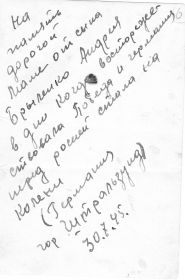 На
память
дорогой
маме от сына
Брыленко Андрея
в дни когда восторжест-
ствовала Победа и германия
перед росией стала на
колени
(Германия
гор Штральзунд)
30.7.45.